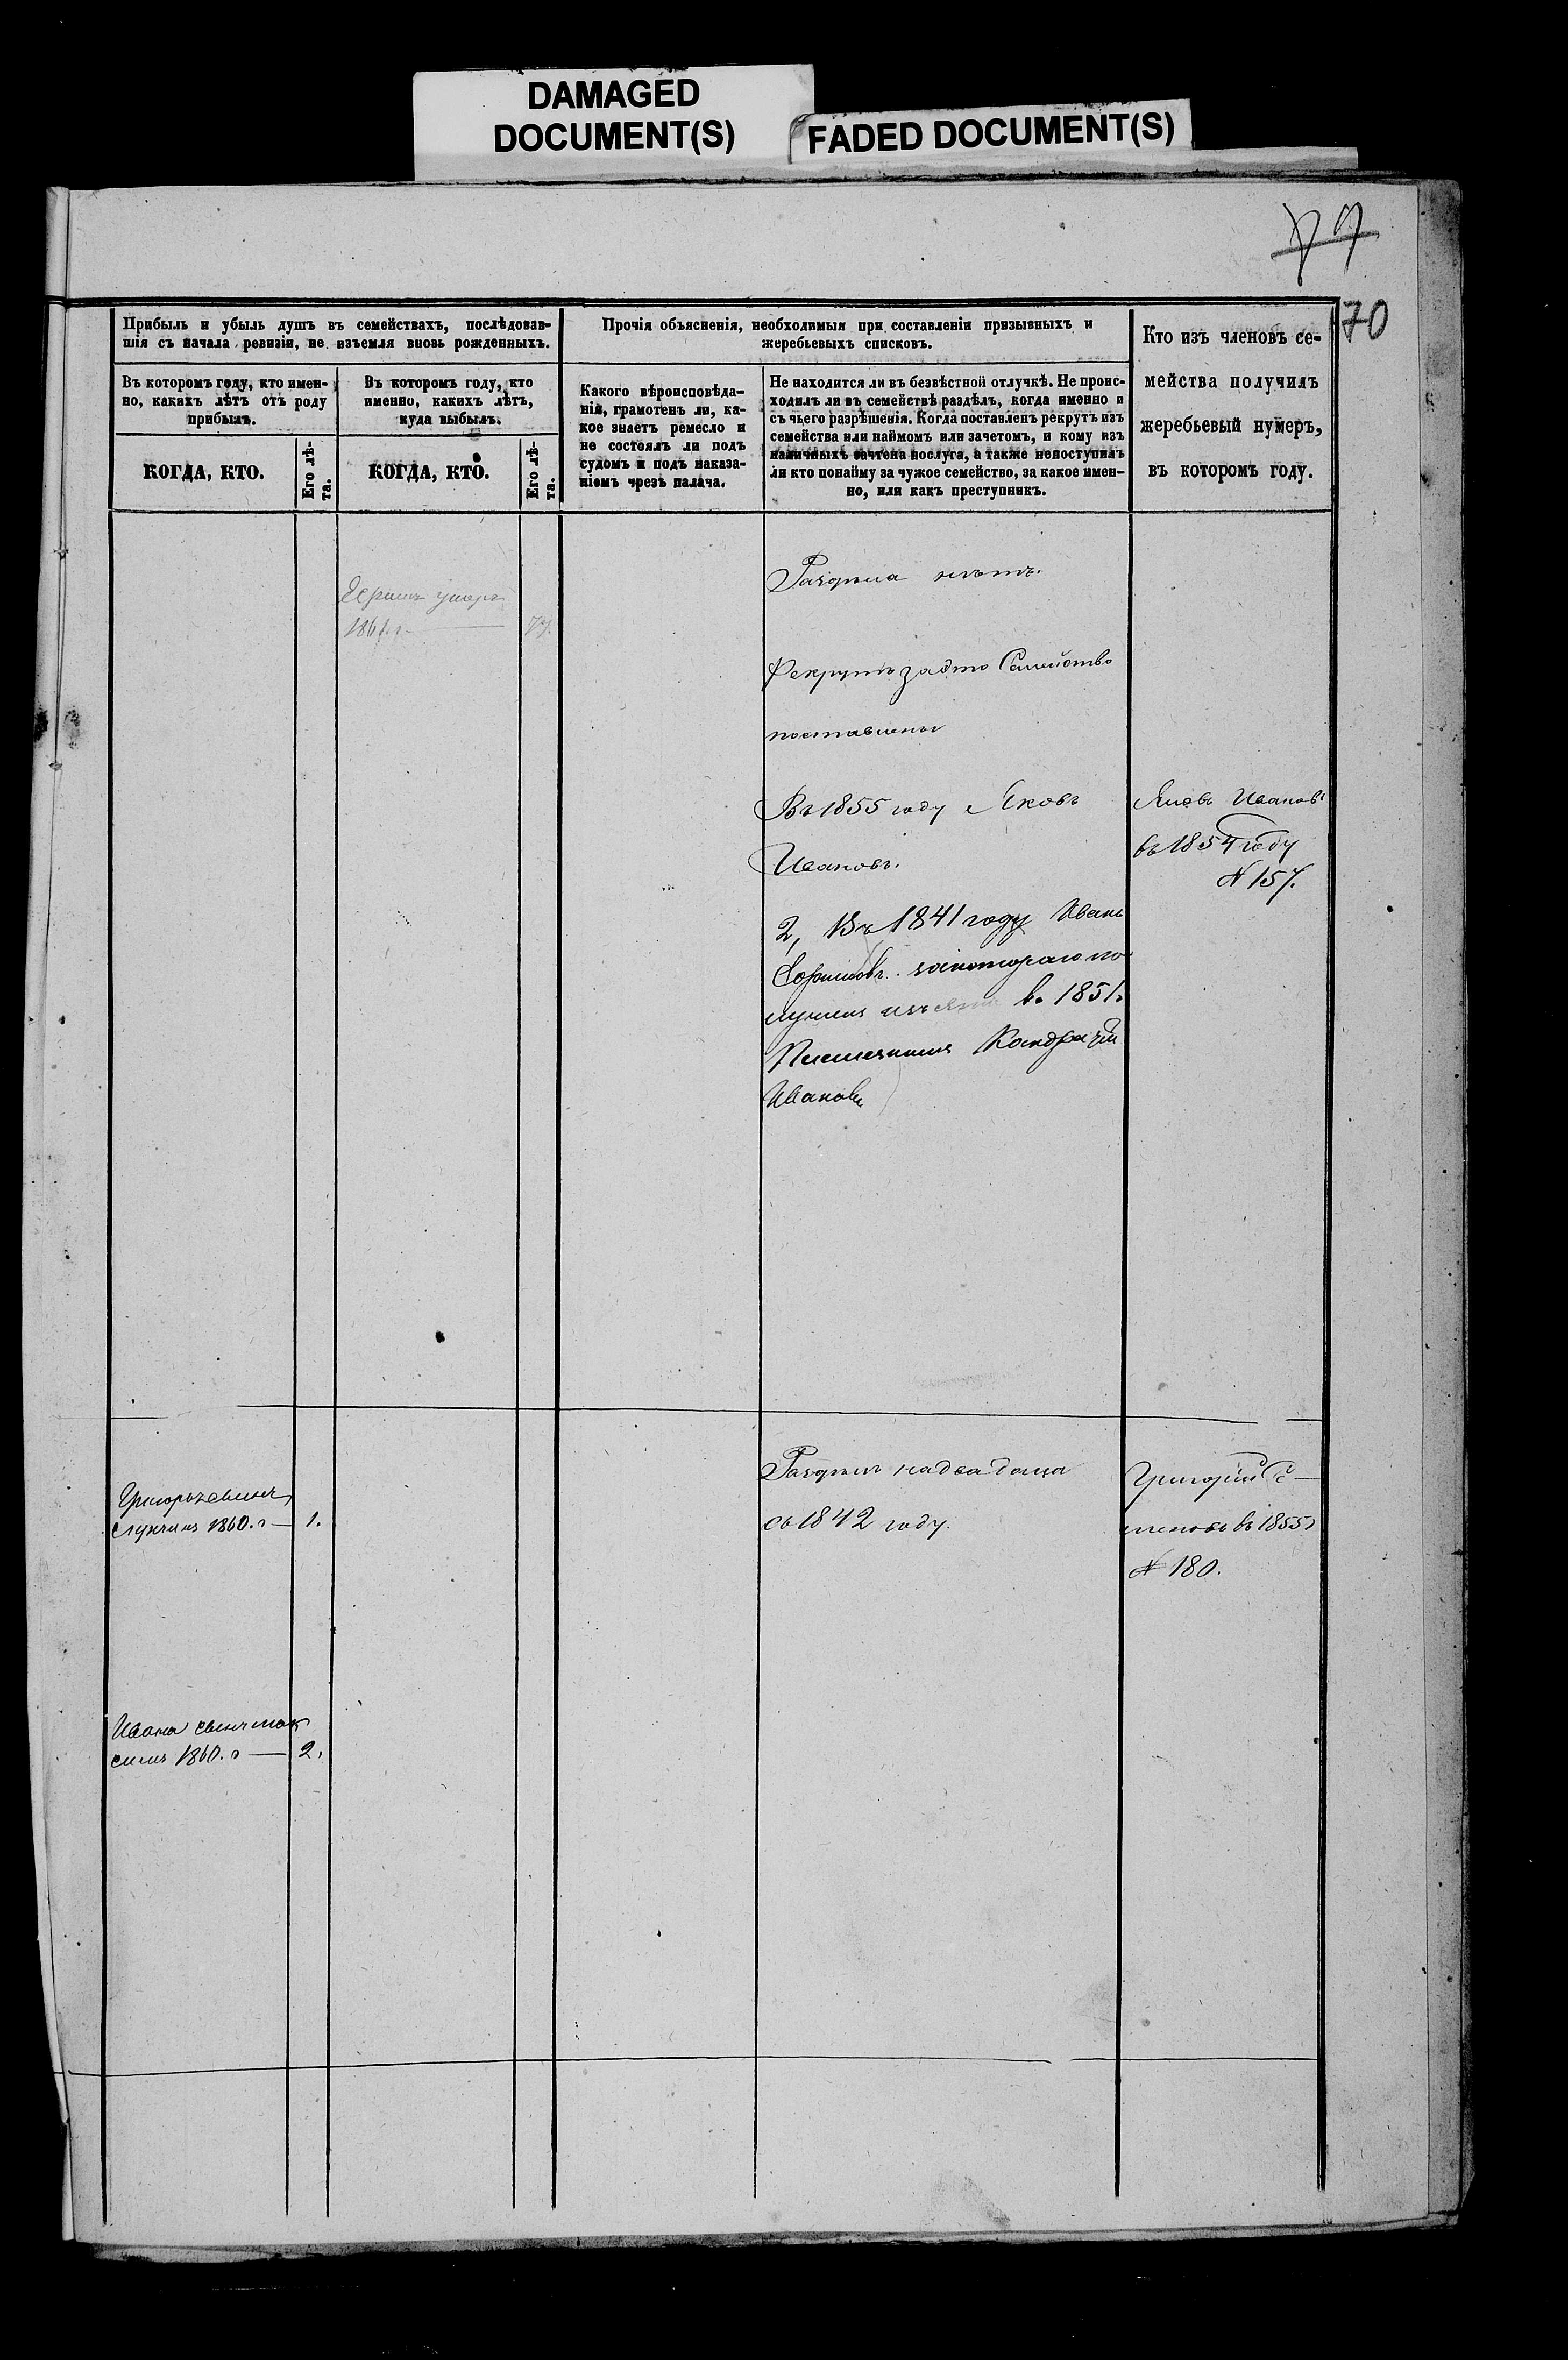 DAMAGED
DOCUMENT(S)
FADED DOCUMENT(S)
77
70
Прибыль и убыль душъ въ семействахъ, послѣдовав-
шія съ начала ревизіи, не изъемля вновь рожденныхъ.
Въ которомъ году, кто имен-
но, какихъ лѣтъ отъ роду
прибылъ.
КОГДА, КТО.
Его лѣ-
та.
Въ которомъ году, кто
именно, какихъ лѣтъ,
куда выбылъ.
КОГДА, КТО.
Его лѣ-
та.
Прочія объясненія, необходимыя при составленіи призывныхъ и
жеребьевыхъ списковъ.
Какого вѣроисповѣда-
нія, грамотенъ ли, ка-
кое знаетъ ремесло и
не состоялъ ли подъ
судомъ и подъ наказа-
ніемъ чрезъ палача.
Не находится ли въ безвѣстной отлучкѣ. Не проис-
ходилъ ли въ семействѣ раздѣлъ, когда именно и
съ чьего разрѣшенія. Когда поставленъ рекрутъ изъ
семейства или наймомъ или зачетомъ, и кому изъ
наличныхъ зачтена послуга, а также непоступилъ
ли кто понайму за чужое семейство, за какое имен-
но, или какъ преступникъ.
Кто изъ членовъ се-
мейства получилъ
жеребьевый нумеръ,
въ которомъ году.
умеръ
186
Раздѣла нѣтъ.
Рекрутъ за это Семейство
поставлены
Въ 1855 году Яковъ
Ивановъ.
Яковъ Ивановъ
въ 1854 году
N 157.
2, Въ 1841 году Иванъ
закотораго по
въ 1851г
Племянникъ Кондратій
Ивановъ
Григорьевъ сынъ
Лукьянъ 1860. г — 1.
Раздѣлъ на два дома
съ 1842 году.
Григорій Се-
меновъ въ 1855г
N 180.
Ивана сынъ Мак
симъ 1860. г — 2.